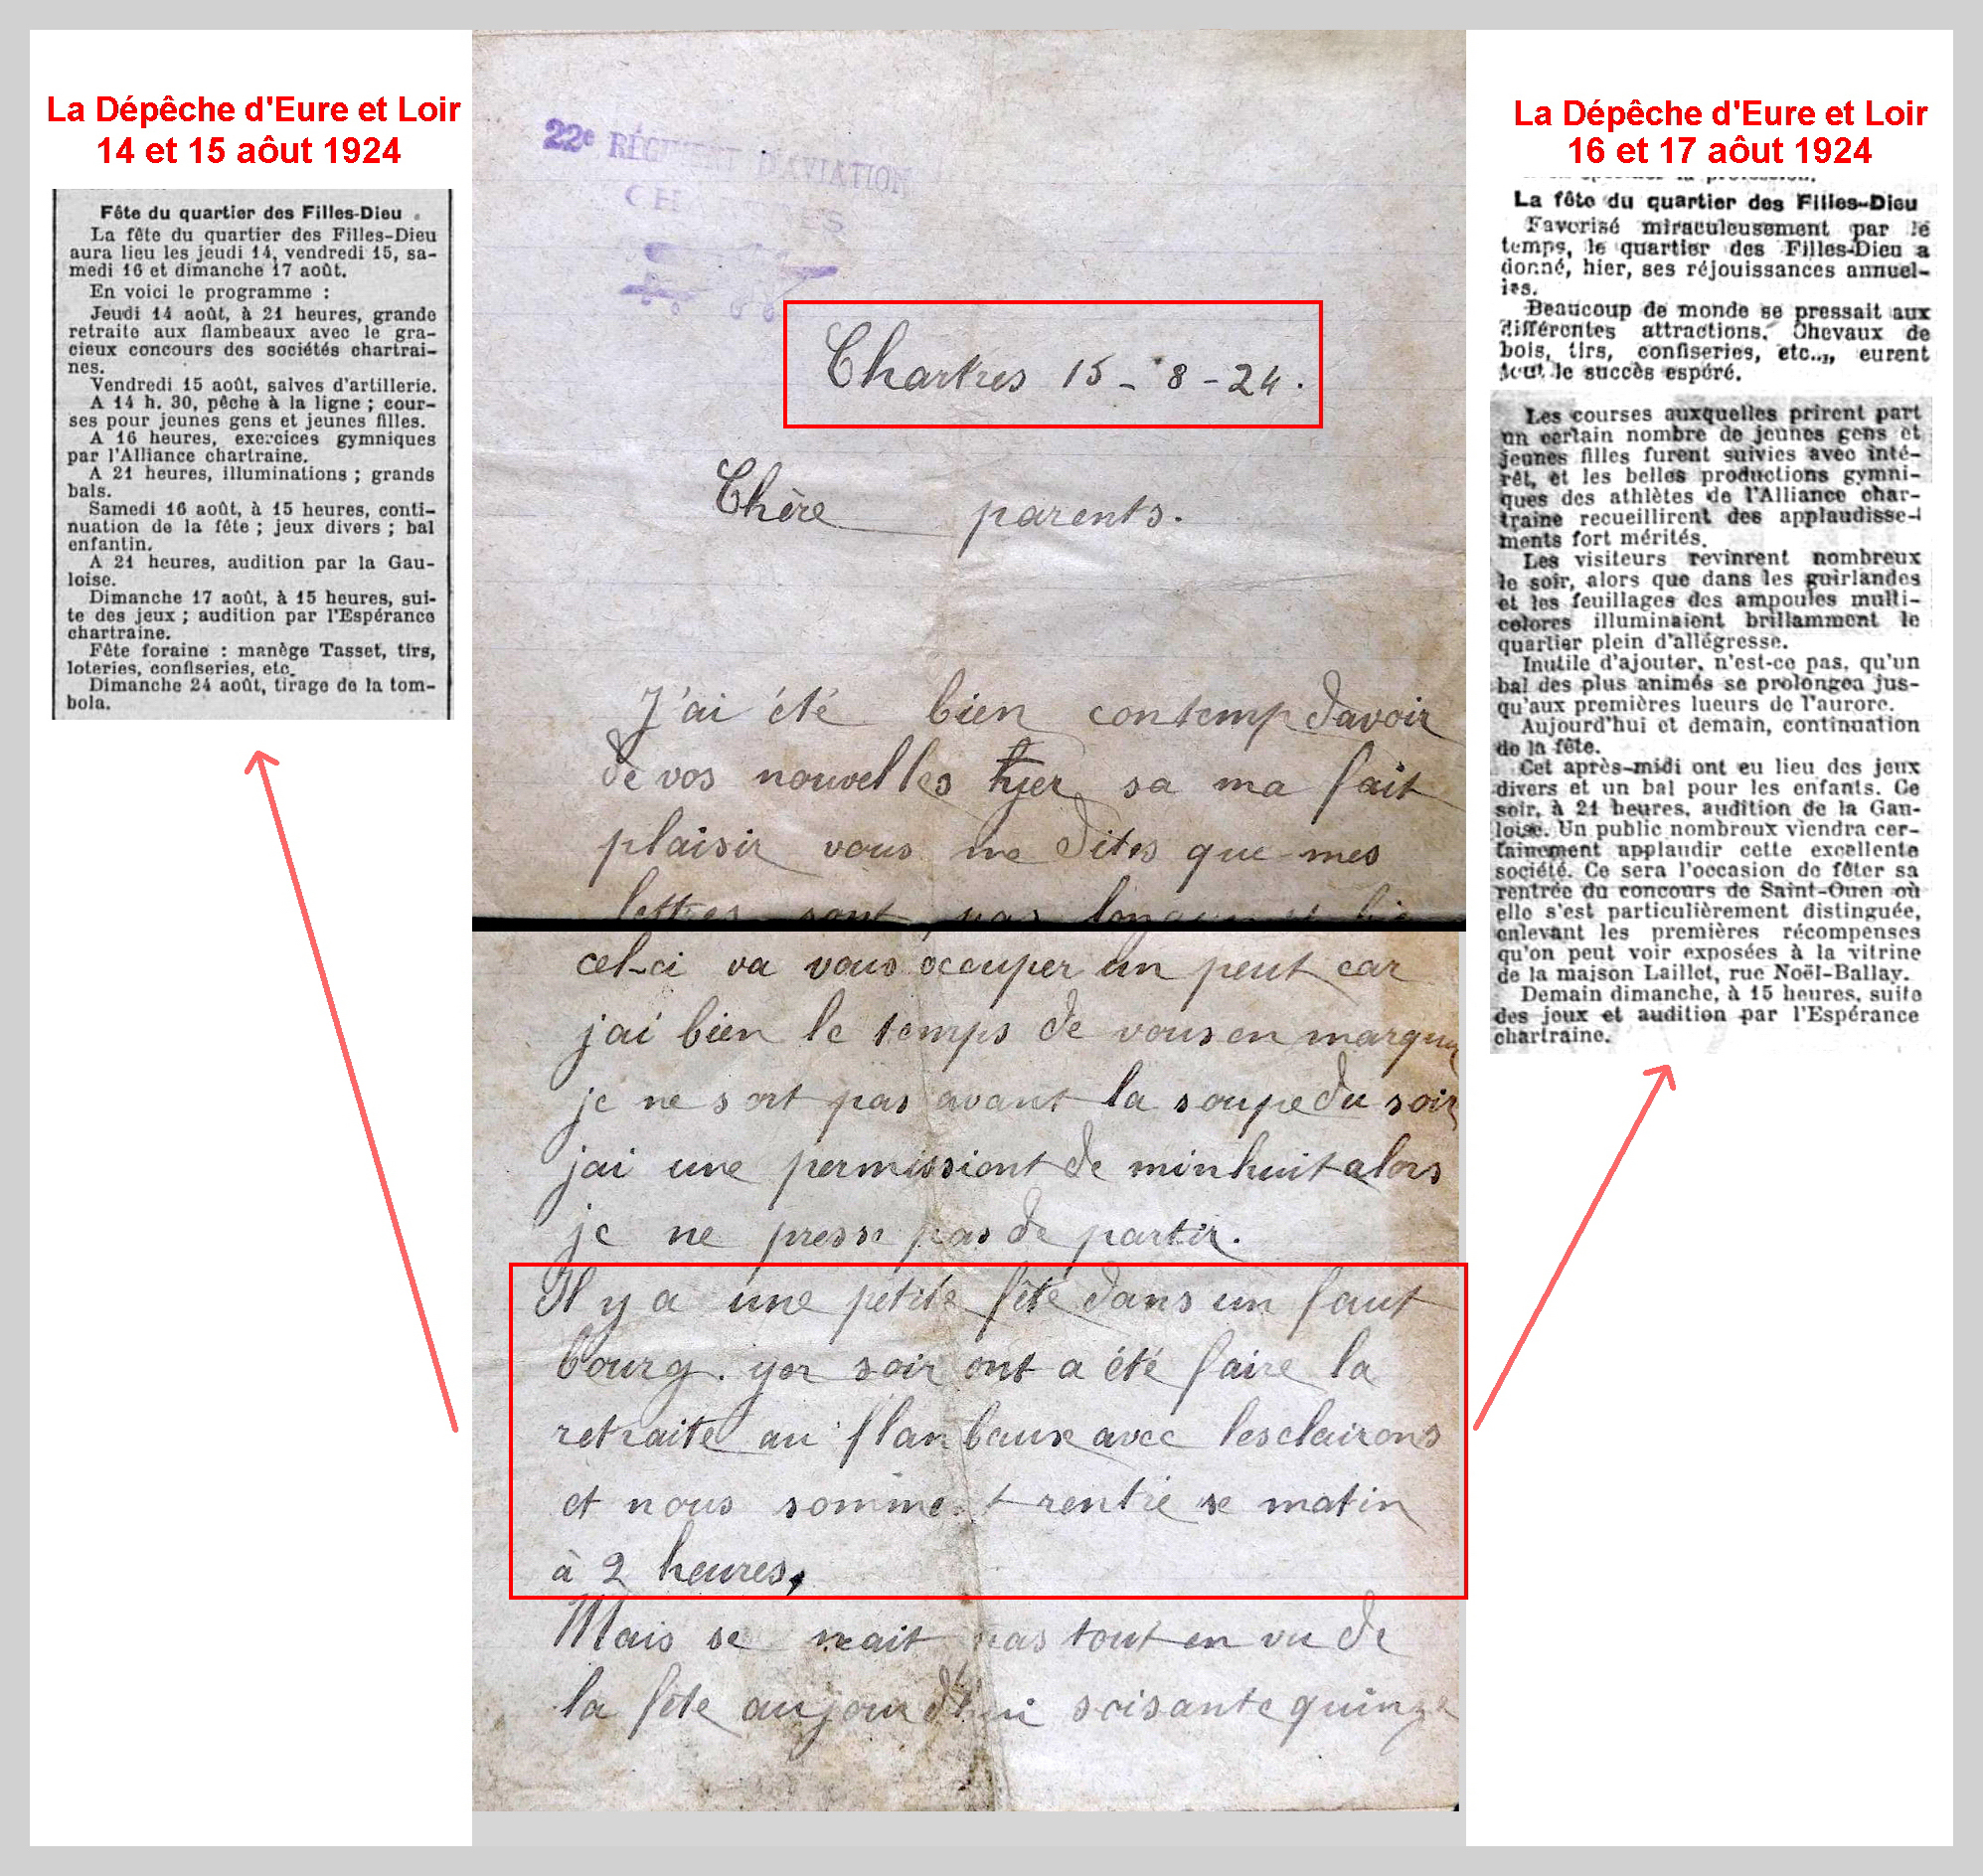 La Dépêche d'Eure et Loir
14 et 15 aôut 1924
Fête du quartier des Filles-Dieu
La fête du quartier des Filles-Dieu
aura lieu les jeudi 14, vendredi 15, sa-
medi 16 et dimanche 17 août.
En voici le programme :
Jeudi 14 août, à 21 heures, grande
retraite aux flambeaux avec le gra-
cieux concours des sociétés chartrai-
nes.
Vendredi 15 août, salves d'artillerie.
A 14 h. 30, pêche à la ligne ; cour-
ses pour jeunes gens et jeunes filles.
A 16 heures, exercices gymniques
par l'Alliance chartraine.
A 21 heures, illuminations ; grands
bals.
Samedi 16 août, à 15 heures, conti-
nuation de la fête ; jeux divers ; bal
enfantin.
A 21 heures, audition par la Gau-
loise.
Dimanche 17 août, à 15 heures, sui-
te des jeux ; audition par l'Espérance
chartraine.
Fête foraine : manège Tasset, tirs,
loteries, confiseries, etc.
Dimanche 24 août, tirage de la tom-
bola.
22e RÉGIMENT D'AVIATION
CHARTRES
Chartres 15 - 8 - 24.
Chère parents.
J'ai été bien contemp davoir
de vos nouvelles hier sa ma fait
plaisir vous me dites que mes
lettres sont pas
cel-ci va vous occuper un peut car
jai bien le temps de vous en marquer
je ne sort pas avant la soupe du soir
jai une permissiont de minhuit alors
je ne presse pas de partir.
Il y a une petite fête dans un faut
bourg. yer soir ont a été faire la
retraite au flanbaux avec les clairons
et nous somment rentré se matin
à 2 heures,
Mais se nait pas tout en vu de
la fête aujourd'hui soisante quinze
La Dépêche d'Eure et Loir
16 et 17 aôut 1924
La fête du quartier des Filles-Dieu
Favorisé miraculeusement par le
temps, le quartier des Filles-Dieu a
donné, hier, ses réjouissances annuel-
les.
Beaucoup de monde se pressait aux
différentes attractions. Chevaux de
bois, tirs, confiseries, etc.., eurent
tout le succès espéré.
Les courses auxquelles prirent part
un certain nombre de jeunes gens et
jeunes filles furent suivies avec inté-
rêt, et les belles productions gymni-
ques des athlètes de l'Alliance char-
traine recueillirent des applaudisse-
ments fort mérités.
Les visiteurs revinrent nombreux
le soir, alors que dans les guirlandes
et les feuillages des ampoules multi-
colores illuminaient brillamment le
quartier plein d'allégresse.
Inutile d'ajouter, n'est-ce pas, qu'un
bal des plus animés se prolongea jus-
qu'aux premières lueurs de l'aurore.
Aujourd'hui et demain, continuation
de la fête.
Cet après-midi ont eu lieu des jeux
divers et un bal pour les enfants. Ce
soir, à 21 heures, audition de la Gau-
loise. Un public nombreux viendra cer-
tainement applaudir cette excellente
société. Ce sera l'occasion de fêter sa
rentrée du concours de Saint-Ouen où
elle s'est particulièrement distinguée,
enlevant les premières récompenses
qu'on peut voir exposées à la vitrine
de la maison Laillet, rue Noël-Ballay.
Demain dimanche, à 15 heures, suite
des jeux et audition par l'Espérance
chartraine.